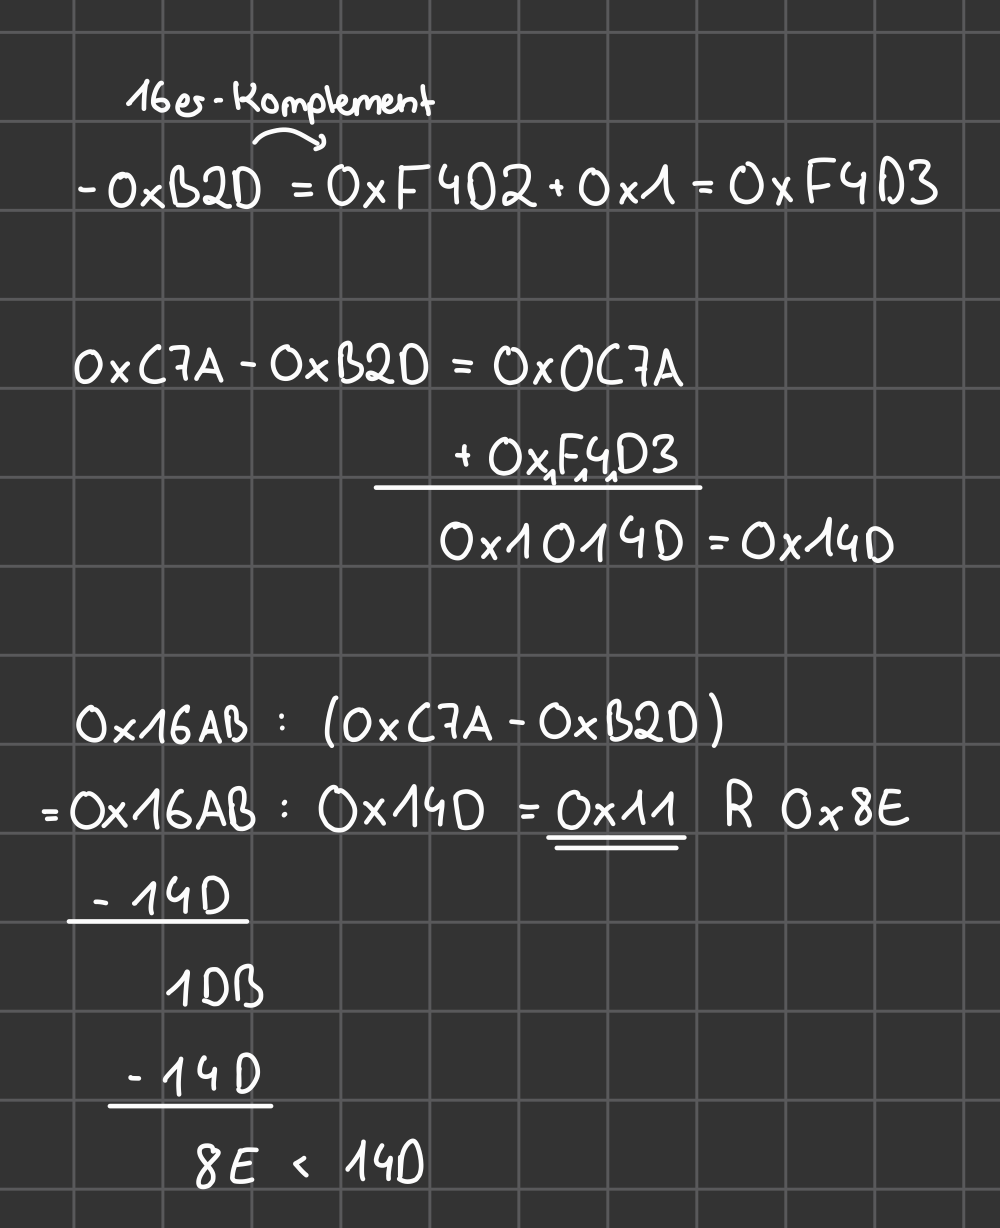 16es-Komplement
-0xB2D = 0xF4D2 + 0x1 = 0xF4D3
0xC7A - 0xB2D = 0x0C7A
+ 0xF4D3
1 1 1
0x1014D = 0x14D
0x16AB : (0xC7A - 0xB2D)
= 0x16AB : 0x14D = 0x11 R 0x8E
- 14D
1DB
- 14D
8E < 14D